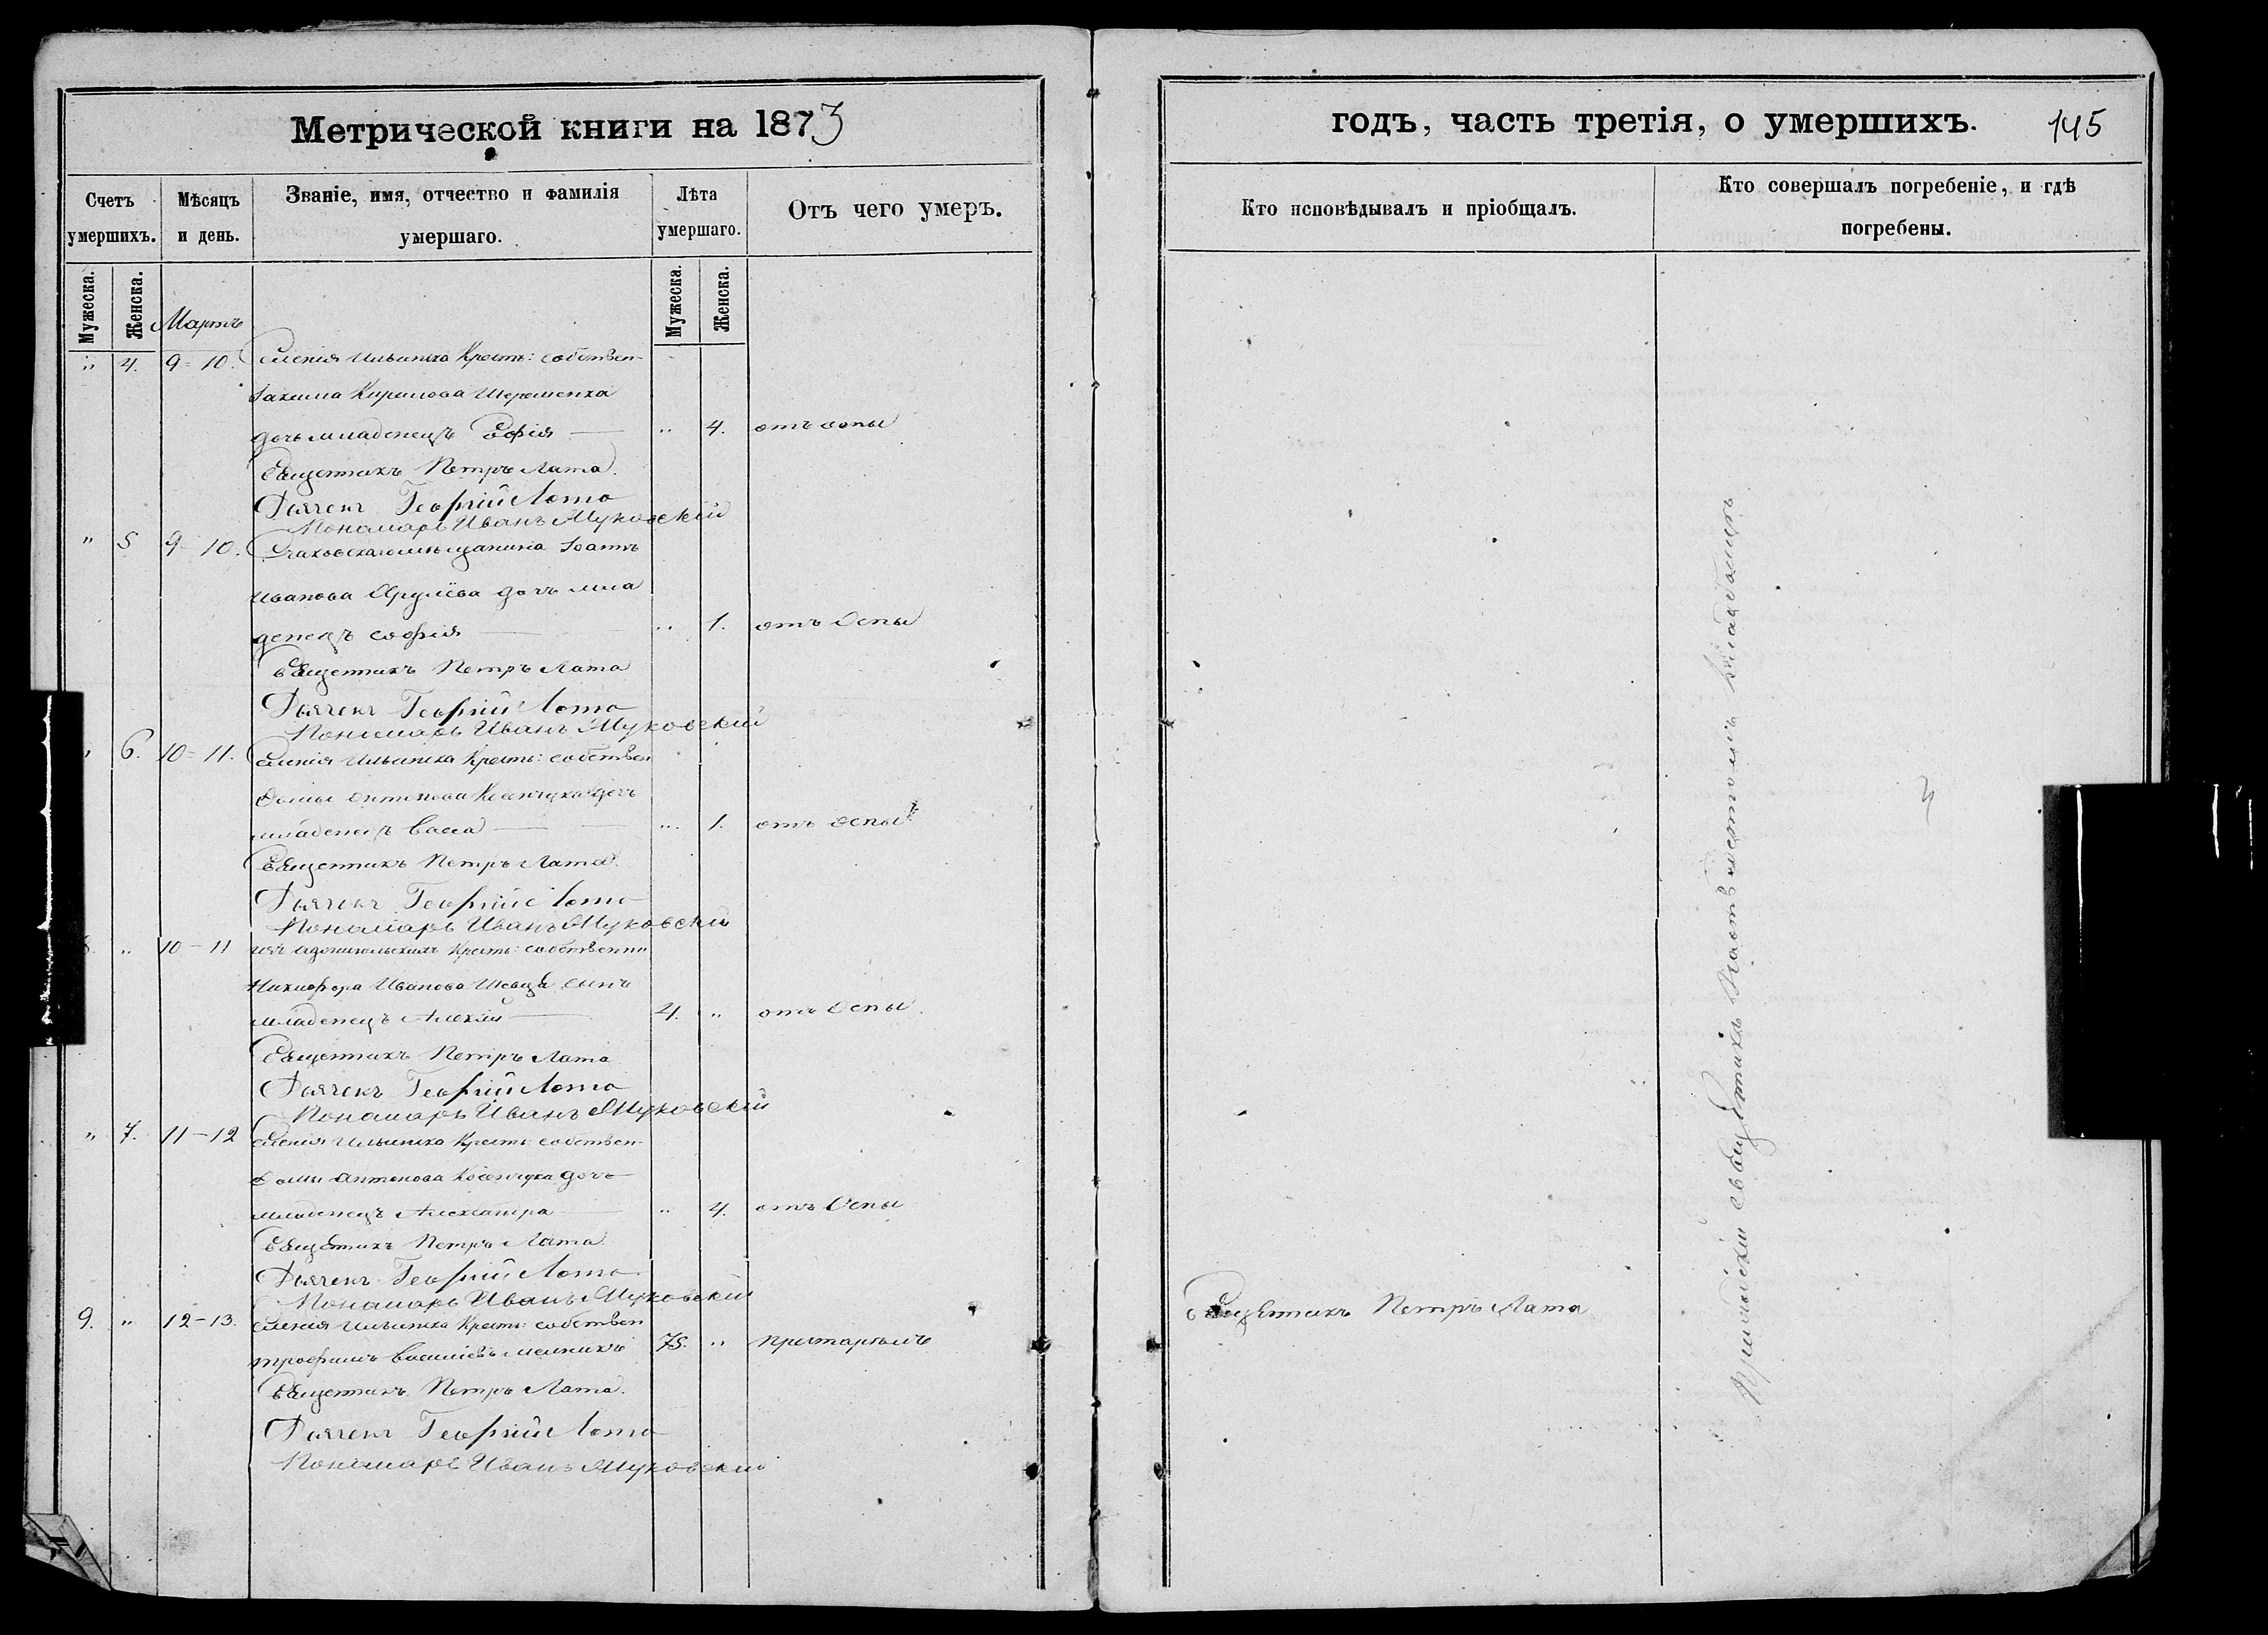 Метрической книги на 1873
Счетъ умершихъ.
Мѣсяцъ и день.
Званіе, имя, отчество и фамилія умершаго.
Лѣта умершаго.
Отъ чего умеръ.
Мужеска.
Женска.
Мартъ
Мужеска.
Женска.
" 4. 9-10. Селенія Ильинка Крест: собствен-
Кирилова
дочь младенецъ Софія — " 4. отъ оспы
Священникъ Петръ Лата.
Дьячекъ Георгій Лата
Пономарь Иванъ Муковскій
" 5 9-10. Очаковскаго мѣщанина Іоанна
Иванова дочь мла
денецъ Софія — " 1. отъ Оспы
Священникъ Петръ Лата
Дьячекъ Георгій Лата
Пономарь Иванъ Муковскій
" 6. 10-11. Селенія Ильинка Крест: собствен
Фомы Антонова дочь
младенецъ Васса — " 1. отъ оспы
Священникъ Петръ Лата.
Дьячекъ Георгій Лата
Пономарь Иванъ Муковскій
" 10-11 Крест: собственни
Никифора Иванова Швеца сынъ
младенецъ Алексій — 4. " отъ Оспы
Священникъ Петръ Лата
Дьячекъ Георгій Лата
Пономарь Иванъ Муковскій
" 7. 11-12 Селенія Ильинка Крест: собствен-
Фомы Антонова дочь
младенецъ Александра — " 4. отъ Оспы
Священникъ Петръ Лата.
Дьячекъ Георгій Лата
Пономарь Иванъ Муковскій
9. " 12-13. Селенія Ильинка Крест: собствен
Трофимъ Василіевъ Мелникъ 75. "
Священникъ Петръ Лата.
Дьячекъ Георгій Лата
Пономарь Иванъ Муковскій
годъ, часть третія, о умершихъ. 145
Кто исповѣдывалъ и пріобщалъ.
Кто совершалъ погребеніе, и гдѣ погребены.
Священникъ Петръ Лата
Приходскій священникъ на мѣстномъ кладбищѣ